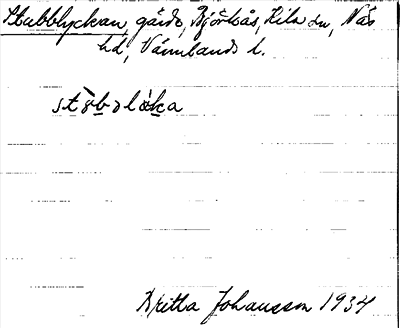 Stubblyckan, gårds, Björkås, Kila sn, Näs
hd, Värmlands l.
stòbəlỳka
Britta Johansson 1934